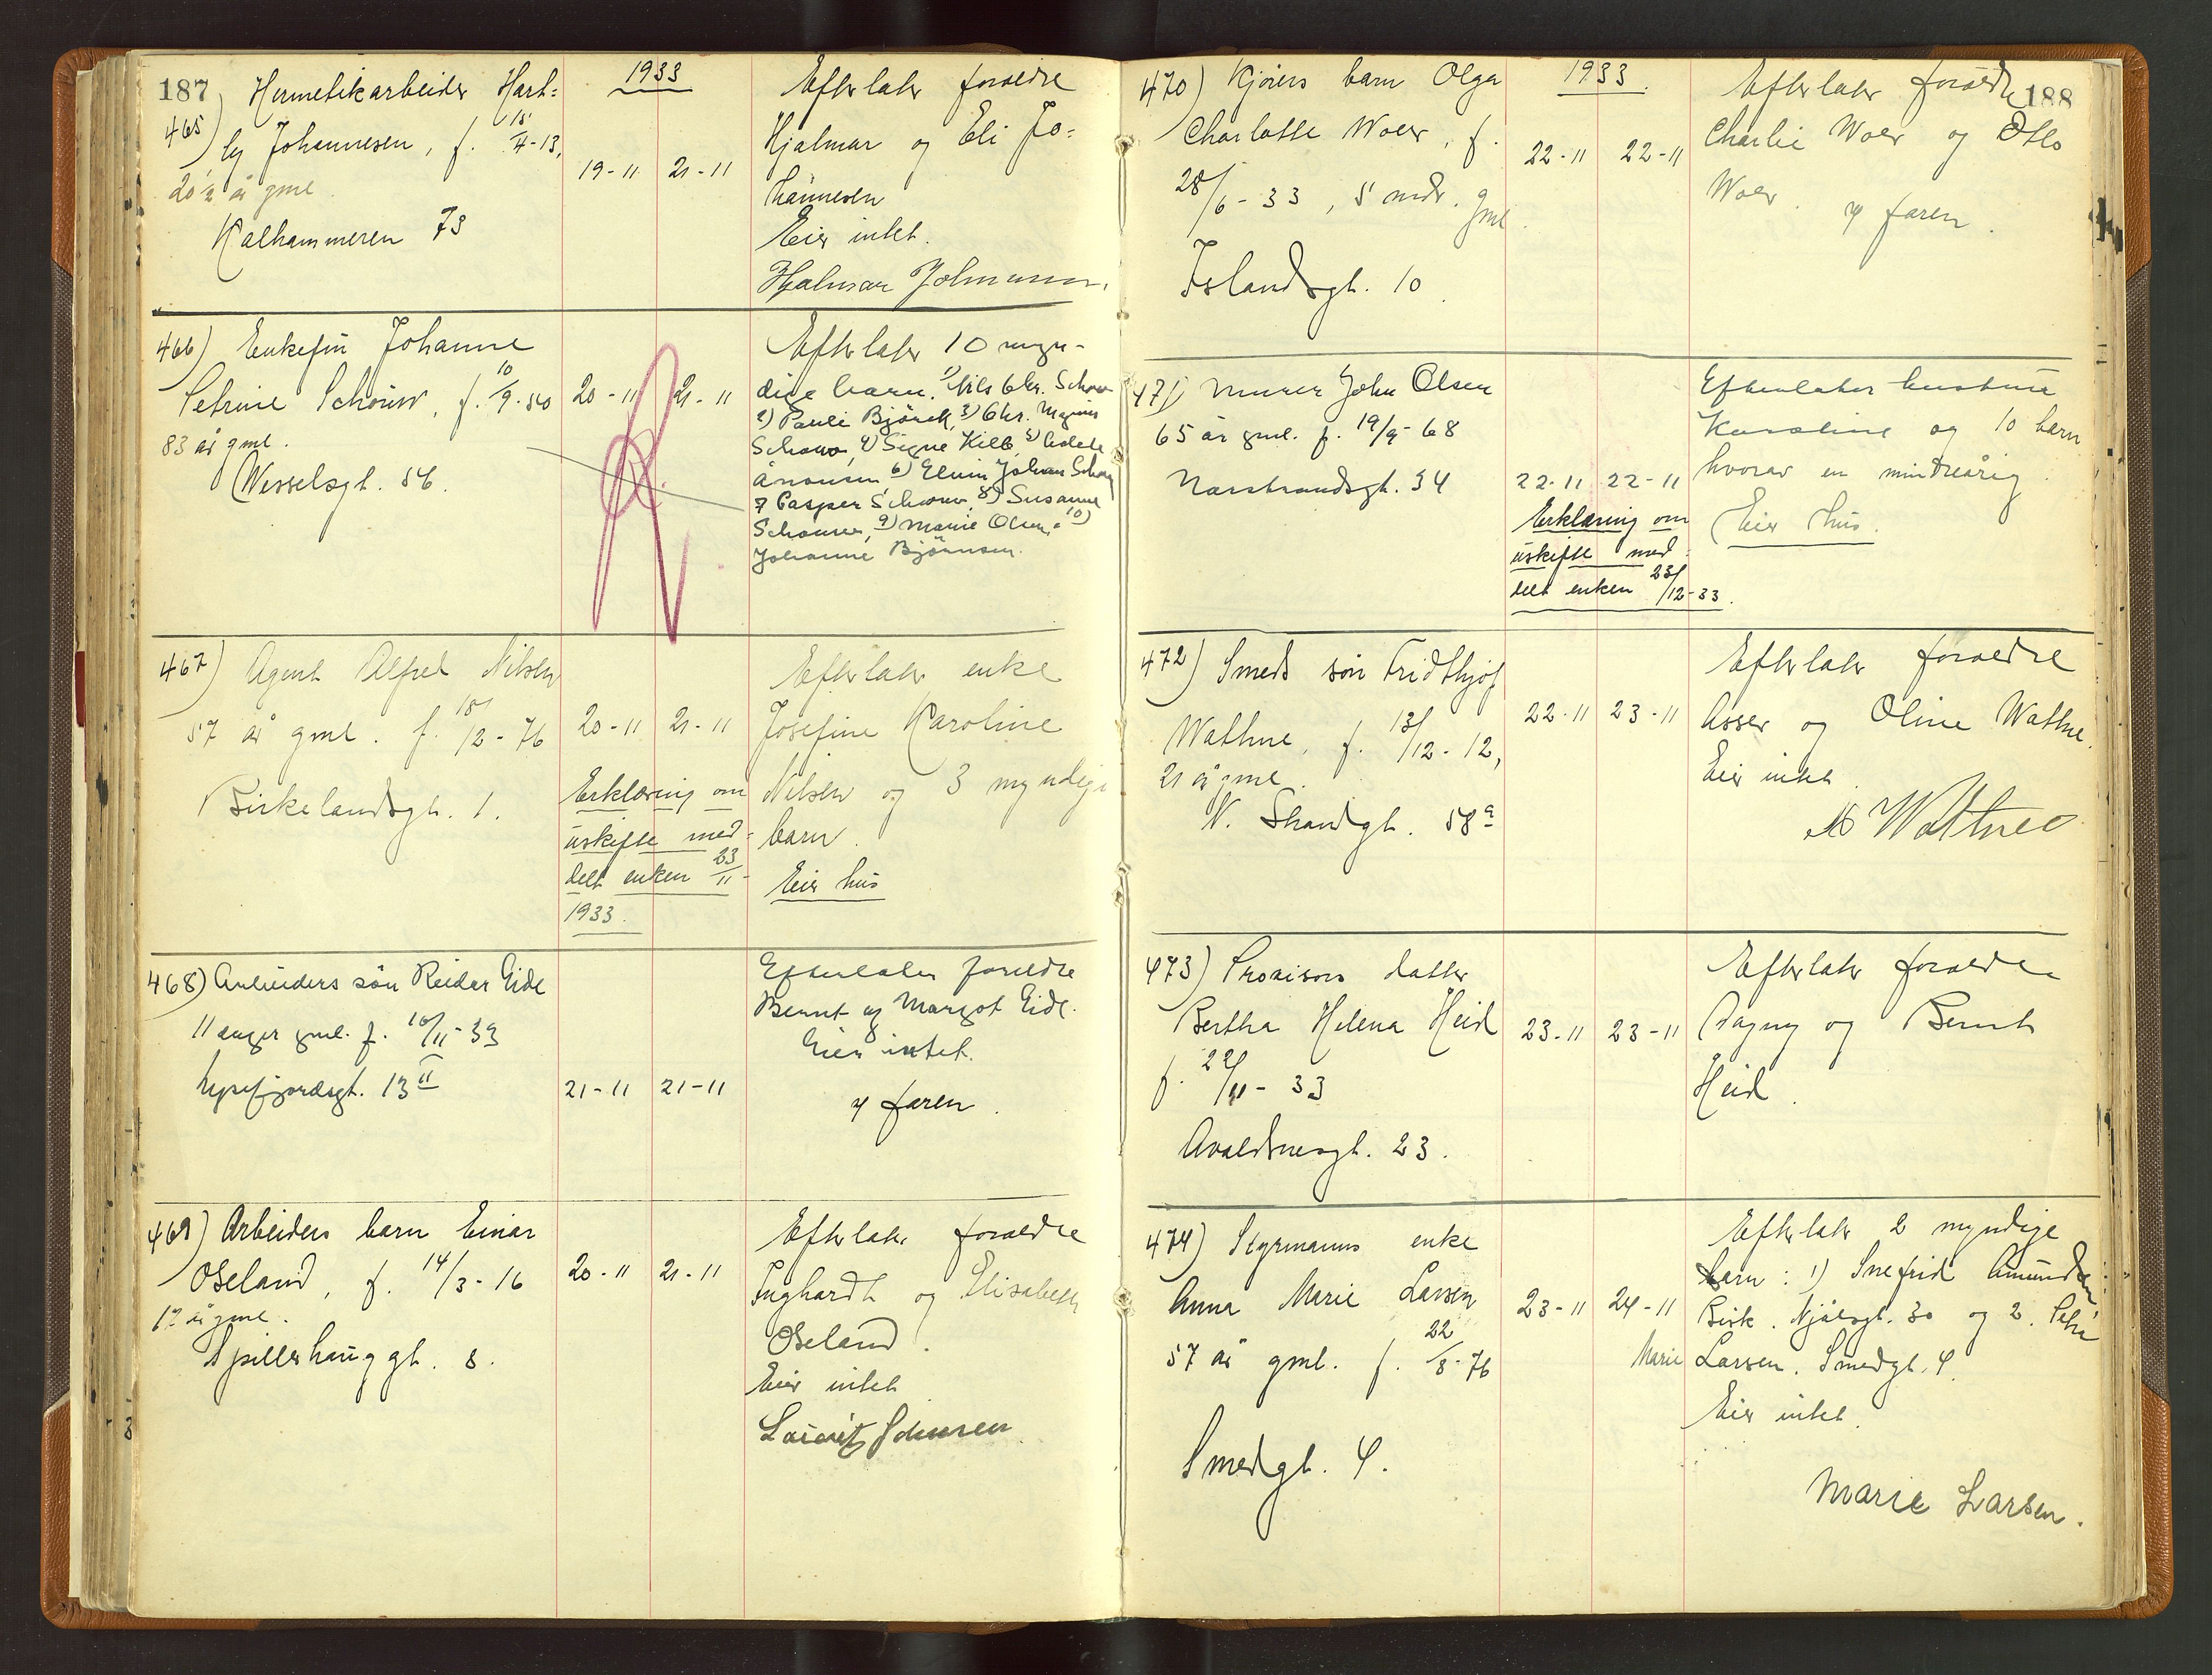 187
1933
465) Hermetikarbeider Hart-
ly Johannesen, f. 15/4-13,
20 1/2 år gml.
Kalhammeren 73
19-11 21-11
Efterlater foreldre
Hjalmar og Eli Jo-
hannesen
Eier intet.
Hjalmar Johannesen.
466) Enkefru Johanne
Petrine Schouw, f. 10/9-50
83 år gml.
Wesselsgt. 56.
20-11 21-11
Efterlater 10 myn-
dige barn. 1) Nils Chr. Schouw
2) Pauli Björck, 3) Chr. Magnus
Schouw, 4) Signe Kilb, 5)
6) Johan Schouw
7 Casper Schouw, 8) Susanne
Schouw, 9) Marie Olsen, 10)
Johanne Björnsen.
467) Agent Alfred Nilsen
57 år gml. f. 18/12-76
Birkelandsgt. 1.
20-11 21-11
Erklæring om
uskifte med-
delt enken 23/11-
1933.
Efterlater enke
Josefine Karoline
Nilsen og 3 myndige
barn.
Eier hus
468) Arbeiders sön Reidar Eide
11 dager gml. f. 10/11-33
Lysefjordsgt. 13 II
21-11 21-11
Efterlater foreldre
Bernt og Margot Eide.
Eier intet.
v/ faren.
469) Arbeiders barn Einar
Oseland, f. 14/3-16
17 år gml.
Spillerhauggt. 8.
20-11 21-11
Efterlater foreldre
Inghardt og Elisabeth
Oseland.
Eier intet
188
1933.
470) Kjörers barn Olga
Charlotte Woer, f.
28/6-33, 5 mdr. gml.
Islandsgt. 10.
22-11 22-11
Efterlater foreldre
Charlie Woer og
Woer. v/ faren.
471) Murer John Olsen
65 år gml. f. 19/9-68
Narstrandsgt. 34
22-11 22-11
Erklæring om
uskifte med-
delt enken 23/12-33.
Efterlater hustru
Karoline og 10 barn
hvorav en mindreårig.
Eier hus.
472) Smeds sön Fridthjof
Wathne, f. 13/12-12,
21 år gml.
N. Strandgt. 58 a
22-11 23-11
Efterlater foreldre
Asser og Oline Wathne.
Eier intet.
A Wathne
473) Provisors datter
Bertha Helena Heid
f. 22/11-33
Avaldsnesgt. 23.
23-11 23-11
Efterlater foreldre
Dagny og Bernt
Heid.
474) Styrmanns enke
Anna Marie Larsen
57 år gml. f. 22/8-76
Smedgt. 4.
23-11 24-11
Efterlater 2 myndige
barn: 1) Snefrid Amundsen
Birk. Njålsgt. 30 og 2. Petra
Marie Larsen. Smedgt. 4.
Eier intet.
Marie Larsen.